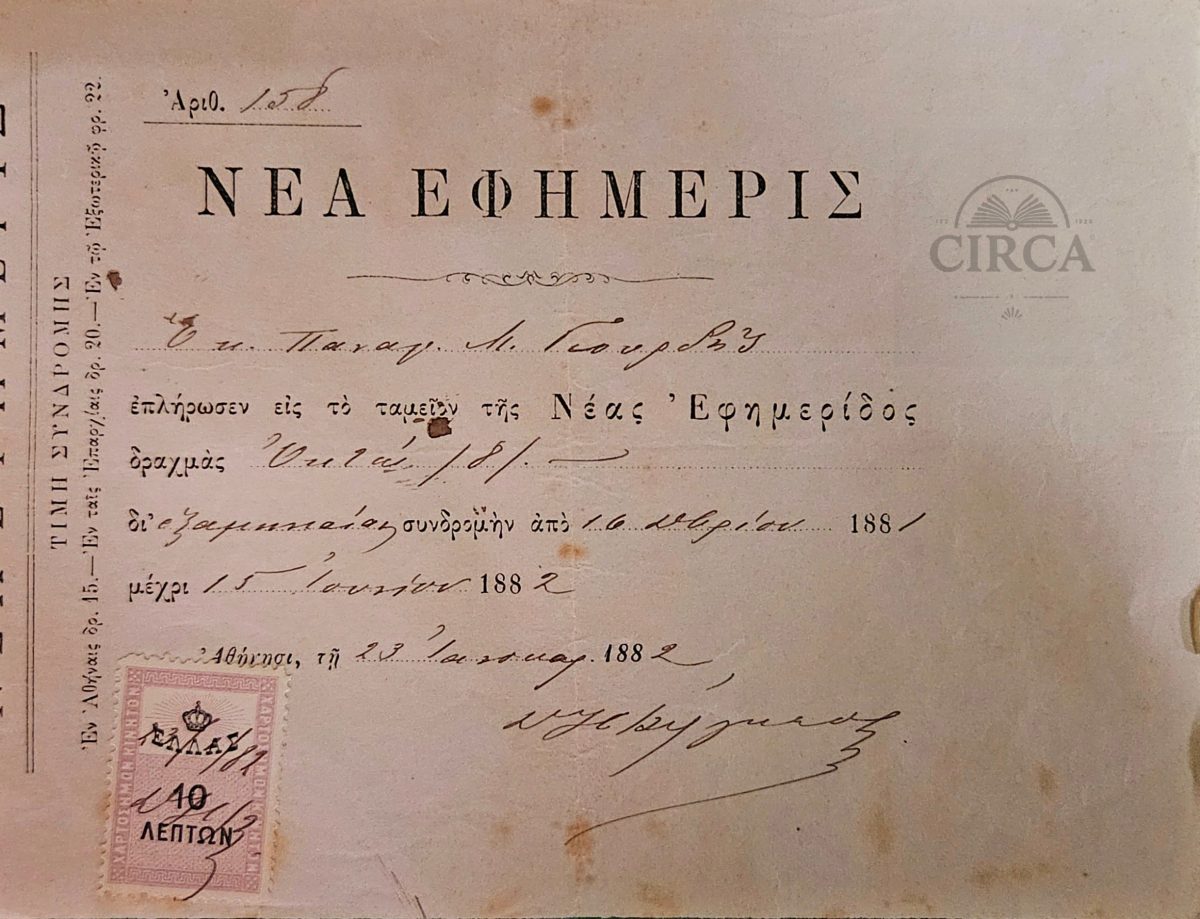 Ἀριθ. 158
ΝΕΑ ΕΦΗΜΕΡΙΣ
Ὁ κ. Παναγ. Μ.
ἐπλήρωσεν εἰς τὸ ταμεῖον τῆς Νέας Ἐφημερίδος
δραχμὰς Ὀκτώ /8/. —
δι' ἑξαμηνιαίαν συνδρομὴν ἀπὸ 16 1881
μέχρι 15 Ἰουνίου 1882
Ἀθήνησι, τῇ 23 Ἰανουαρ. 1882
ΤΙΜΗ ΣΥΝΔΡΟΜΗΣ
Ἐν Ἀθήναις δρ. 15.—Ἐν ταῖς Ἐπαρχίαις δρ. 20.—Ἐν τῷ Ἐξωτερικῷ φρ. 22.
ΧΑΡΤΟΣΗΜΟΝ ΚΙΝΗΤΟΝ
ΕΛΛΑΣ
10
ΛΕΠΤΩΝ
23/1/82
CIRCA